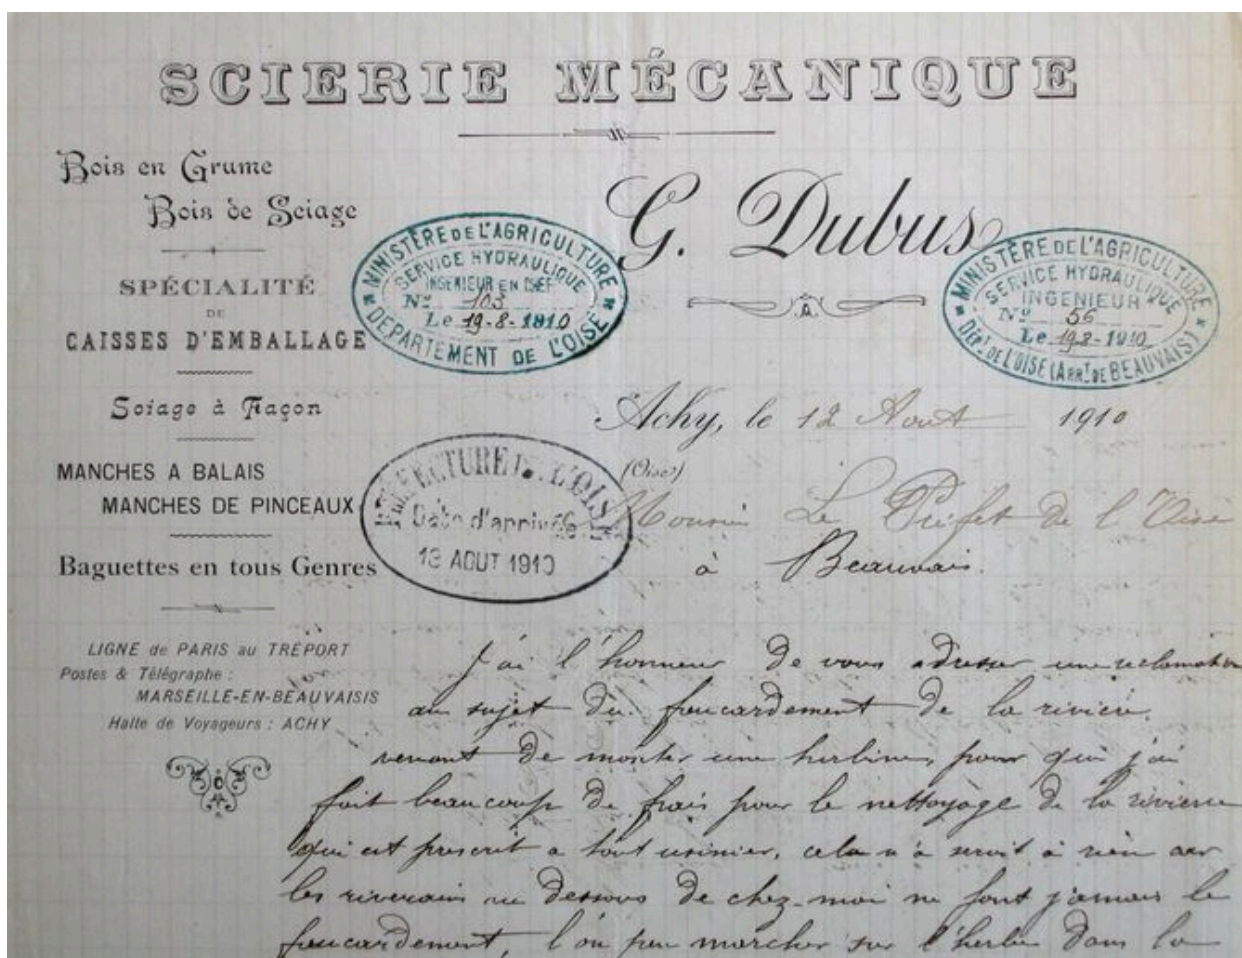 SCIERIE MÉCANIQUE
Bois en Grume
Bois de Sciage
SPÉCIALITÉ
DE
CAISSES D'EMBALLAGE
Sciage à Façon
MANCHES A BALAIS
MANCHES DE PINCEAUX
Baguettes en tous Genres
LIGNE de PARIS au TRÉPORT
Postes & Télégraphe :
MARSEILLE-EN-BEAUVAISIS
Halte de Voyageurs : ACHY
G. Dubus
MINISTÈRE DE L'AGRICULTURE
SERVICE HYDRAULIQUE
INGÉNIEUR EN CHEF
N° 103
Le 19-8-1910
DÉPARTEMENT DE L'OISE
MINISTÈRE DE L'AGRICULTURE
SERVICE HYDRAULIQUE
INGÉNIEUR
N° 56
Le 19-8-1910
DÉPT DE L'OISE (ARRT DE BEAUVAIS)
Achy, le 12 Aout 1910
(Oise)
PRÉFECTURE DE L'OISE
Date d'arrivée
13 AOUT 1910
Monsieur Le Préfet de l'Oise
à Beauvais.
J'ai l'honneur de vous adresser une reclamation
au sujet du foucardement de la rivière.
venant de monter une turbine, pour qui j'ai
fait beaucoup de frais pour le nettoyage de la rivière
qui est prescrit a tout usinier, cela n'a servit à rien car
les riverains au dessous de chez-moi ne font jamais le
foucardement, l'on peu marcher sur l'herbe dans la